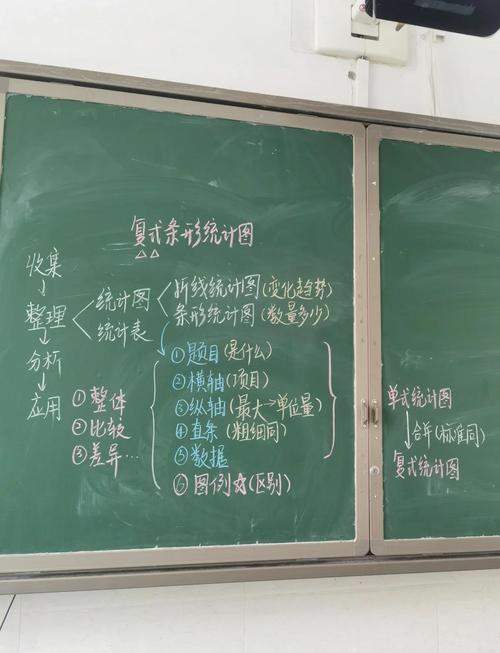 复式条形统计图
收集
↓
整理
↓
分析
↓
应用
统计图
统计表
折线统计图(变化趋势)
条形统计图(数量多少)
①题目(是什么)
②横轴(项目)
③纵轴(最大→单位量)
④直条(粗细同)
⑤数据
⑥图例☆(区别)
①整体
②比较
③差异…
单式统计图
↓合并(标准同)
复式统计图